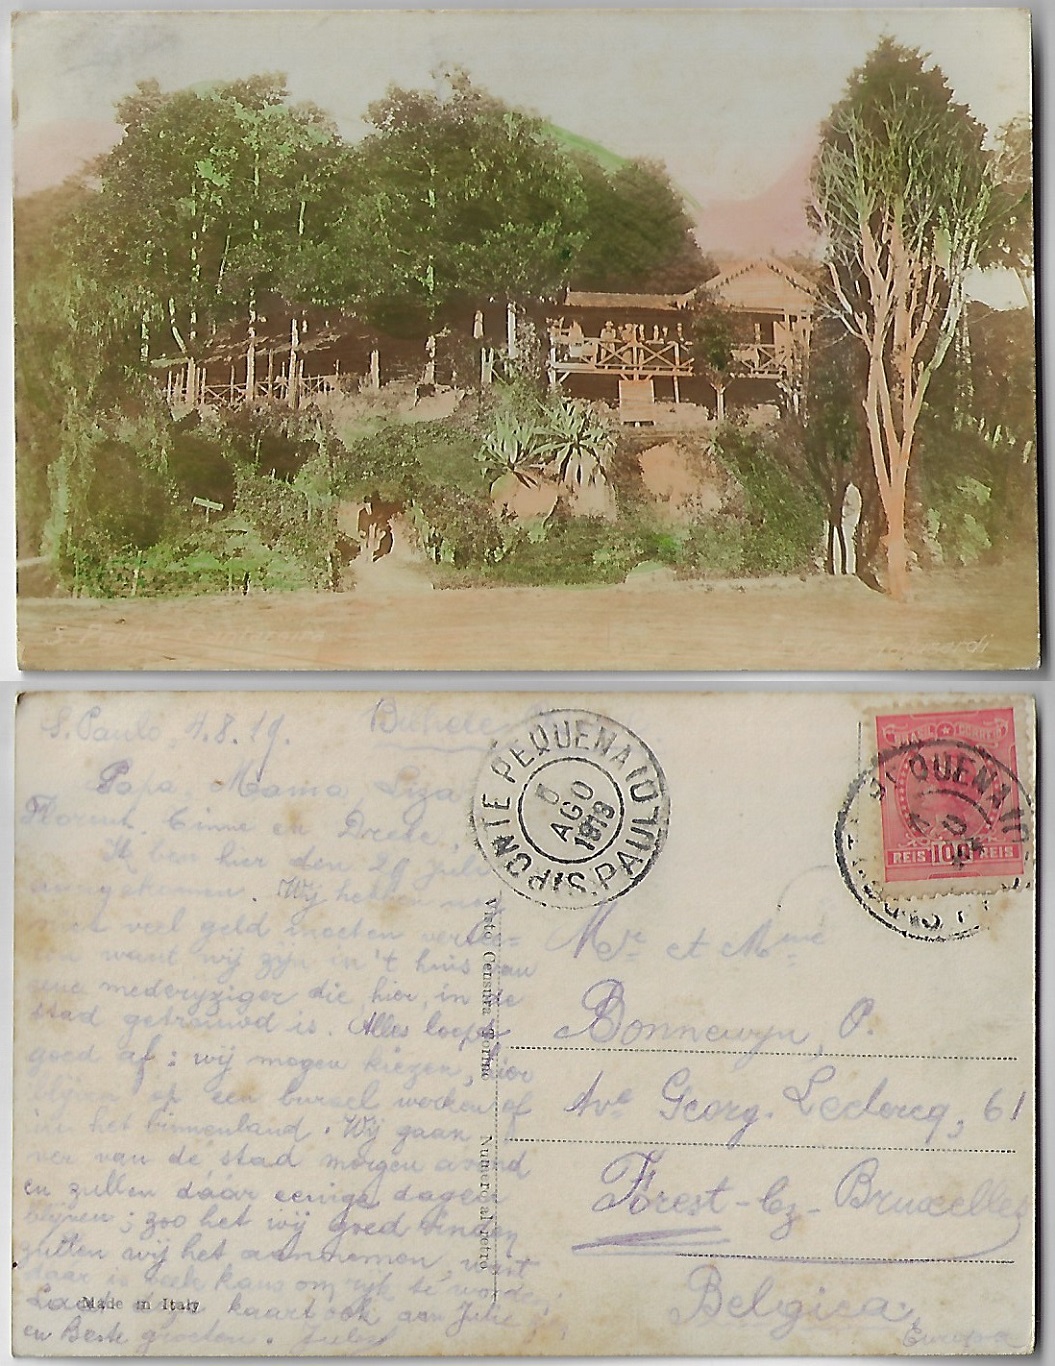 S. Paulo
S. Paulo, 4.8.19.
Papa, Mama, Liza
en
Ik ben hier den 29 Juli
aangekomen. Wij hebben nog
niet veel geld moeten vertee=
ren want wij zijn in 't huis van
medereiziger die hier, in de
stad getrouwd is. Alles loopt
goed af: wij mogen kiezen, hier
blijven op een bureel werken of
in het binnenland. Wij gaan
ver van de stad morgen avond
en zullen daar eenige dagen
blijven; zoo het wij goed vinden
zullen wij het aannemen, want
daar is veele kans om rijk te worden;
Laat deze kaart ook aan Julie
en Beste groeten. Jules
Made in Italy
Visto Censura Torino
PONTE PEQUENA (D
5
AGO
1919
S. PAULO
BRASIL CORREIO
REIS 100 REIS
PEQUENA (D
Mr et Mme
Bonnewyn, P.
Ave Georg. Leclercq, 61
Forest-lez-Bruxelles
Belgica
Europa